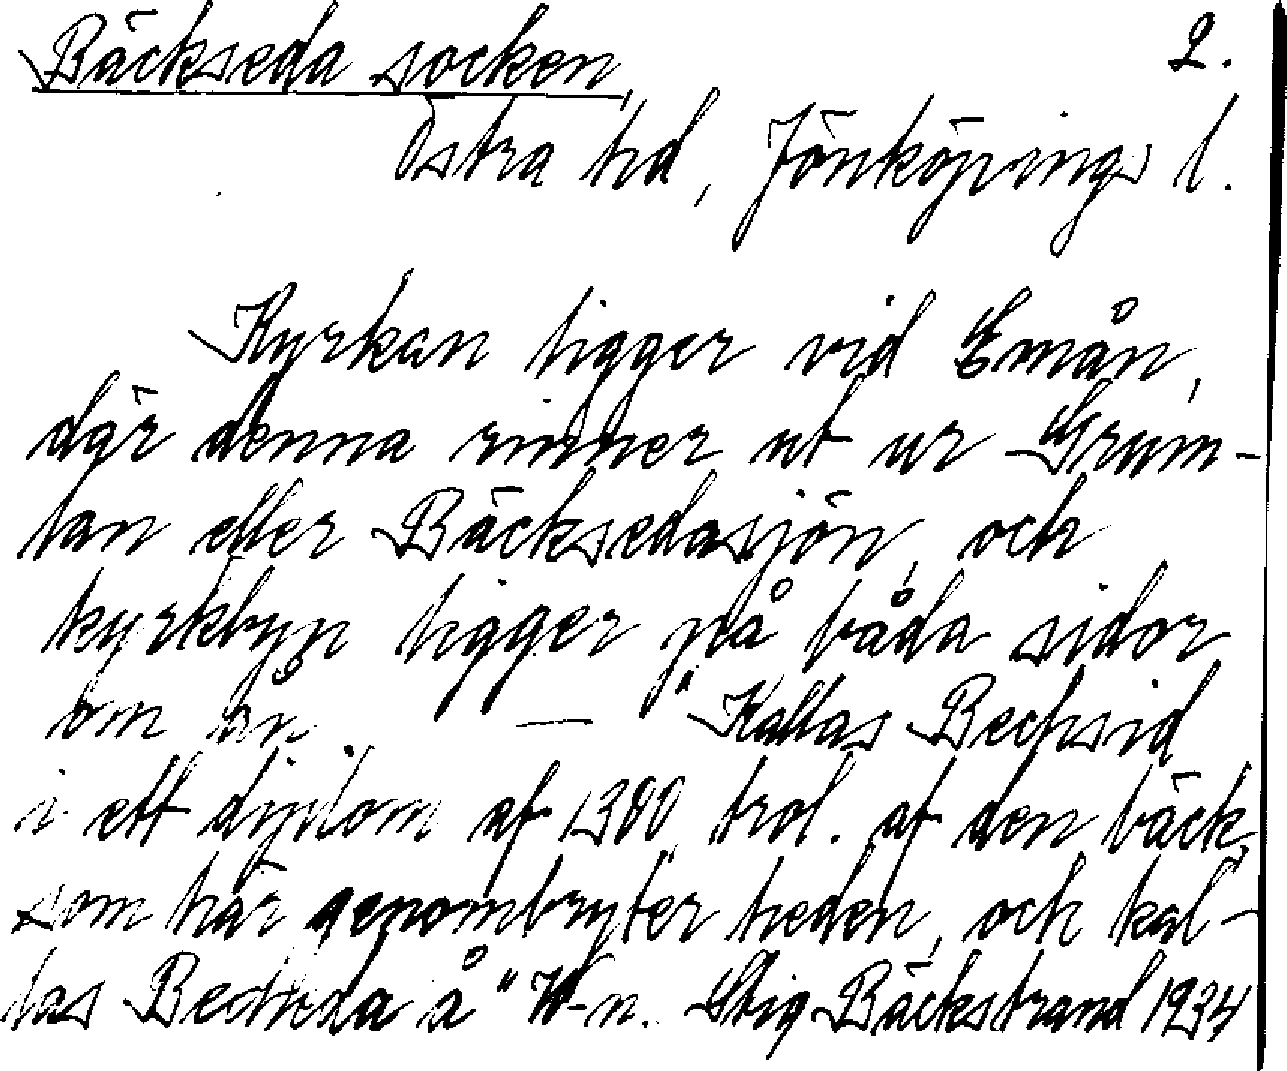 Bäckseda socken, 2.
Östra hd, Jönköpings l.
Kyrkan ligger vid Emån,
där denna rinner ut ur Grum-
lan eller Bäcksedasjön, och
kyrkbyn ligger på båda sidor
om ån. — "Kallas
i ett diplom af 1300, trol. af den bäck,
som här genombryter heden, och kal-
las å" W-n. Stig Bäckstrand 1934